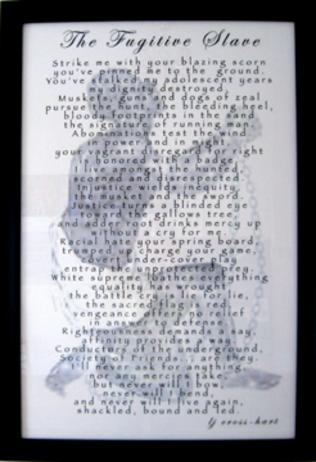 The Fugitive Slave
Strike me with your blazing scorn
you've pinned me to the ground.
You've stalked my adolescent years
dignity destroyed.
Muskets, guns and dogs of zeal
pursue the hunt, the bleeding heel,
bloody footprints in the sand
the signature of running man.
Abominations test the wind
in power and in might,
your vagrant disregard for right
honored with a badge.
I live amongst the hunted
scorned and disrespected.
Injustice wields inequity
the musket and the sword.
Justice turns a blinded eye
toward the gallows tree
and adder root drinks mercy up
without a cry for me.
Racial hate your spring board,
trumped up charge your game,
covert under-cover play
entraps the unprotected prey.
White supreme loathes everything
equality has wrought,
the battle cry a lie for lie,
the sacred flag is red,
vengeance offers no relief
in answer to defense.
Righteousness demands a say,
affinity provides a way.
Conductors of the underground,
Society of Friends, are they.
I'll never ask for anything,
nor any mercies take,
but never will I bow,
never will I bend,
and never will I live again,
shackled, bound and led.
lj cross-hart